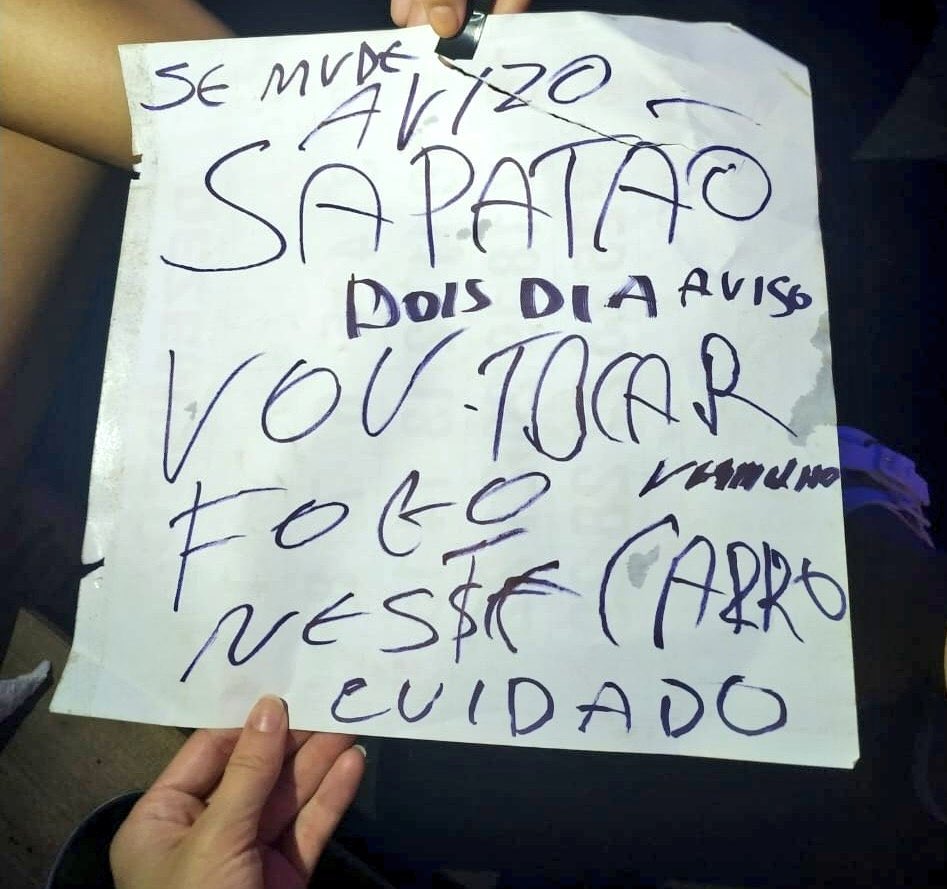 SE MUDE
AVIZO
SAPATÃO
DOIS DIA AVISO
VOU TOCAR
FOGO VERMELHO
NESSTE CARRO
CUIDADO